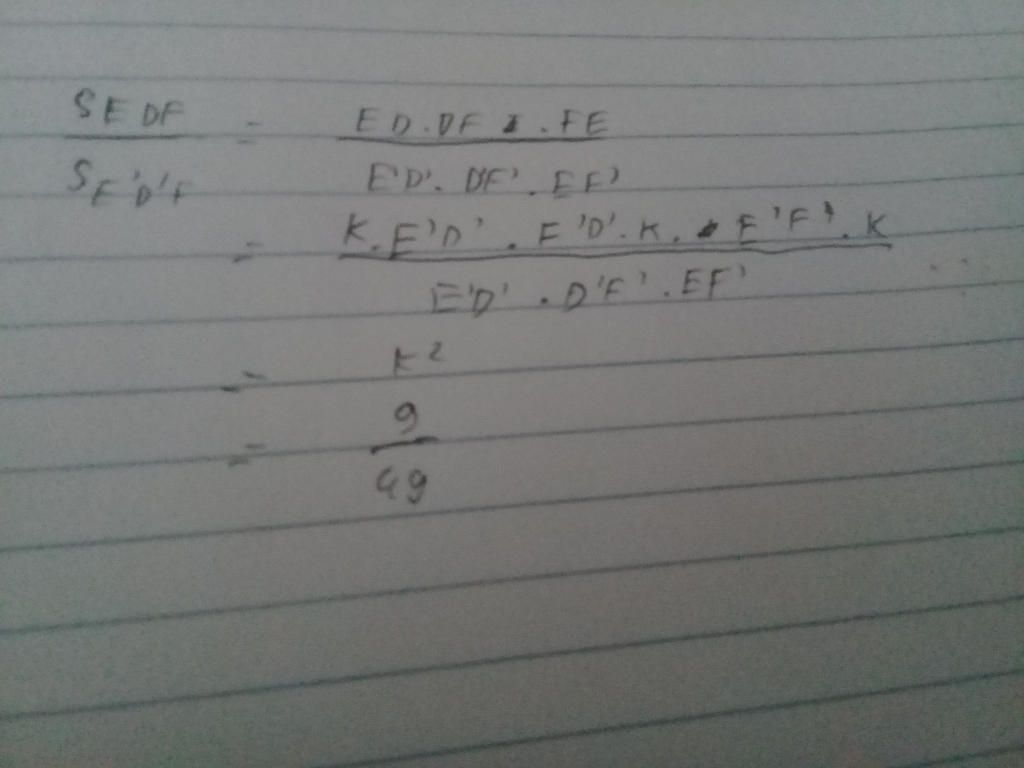 S E DF = ED.DF . FE
S E'D'F E'D'. DF'. EF'
= K.E'D' . E'D'.K. E'F'.K
E'D' . D'F' .EF'
= K²
= 9
49